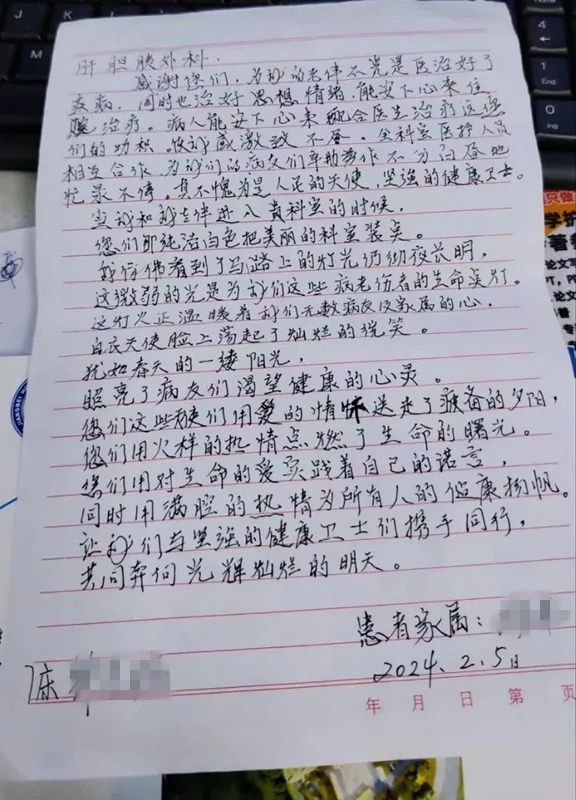 肝胆胰外科.
感谢您们,为我的老伴不光是医治好了
疾病,同时也治好思想情绪,能安下心来住
院治疗。病人能安下心来配合医生治疗这是您
们的功积,使我感激致不尽。全科室医护人员
相互合作,为我们的病友们辛勤劳作不分白昼地
忙录不停,真不愧为是人民的天使,坚强的健康卫士。
当我和我老伴进入贵科室的时候,
您们那纯洁白色把美丽的科室装点。
我仿佛看到了马路上的灯光仍彻夜长明,
这微弱的光是为我们这些病老伤者的生命点灯。
这灯火正温暖着我们无数病友及家属的心,
白衣天使脸上荡起了灿烂的微笑。
犹如春天的一缕阳光,
照亮了病友们渴望健康的心灵。
您们这些天使们用爱的情怀送走了疲备的夕阳,
您们用火样的热情点燃了生命的曙光。
您们用对生命的爱实践着自己的诺言,
同时用满腔的热情为所有人的健康扬帆。
让我们与坚强的健康卫士们携手同行,
共同奔向光辉灿烂的明天。
患者家属:
床
2024.2.5日
年 月 日 第 页